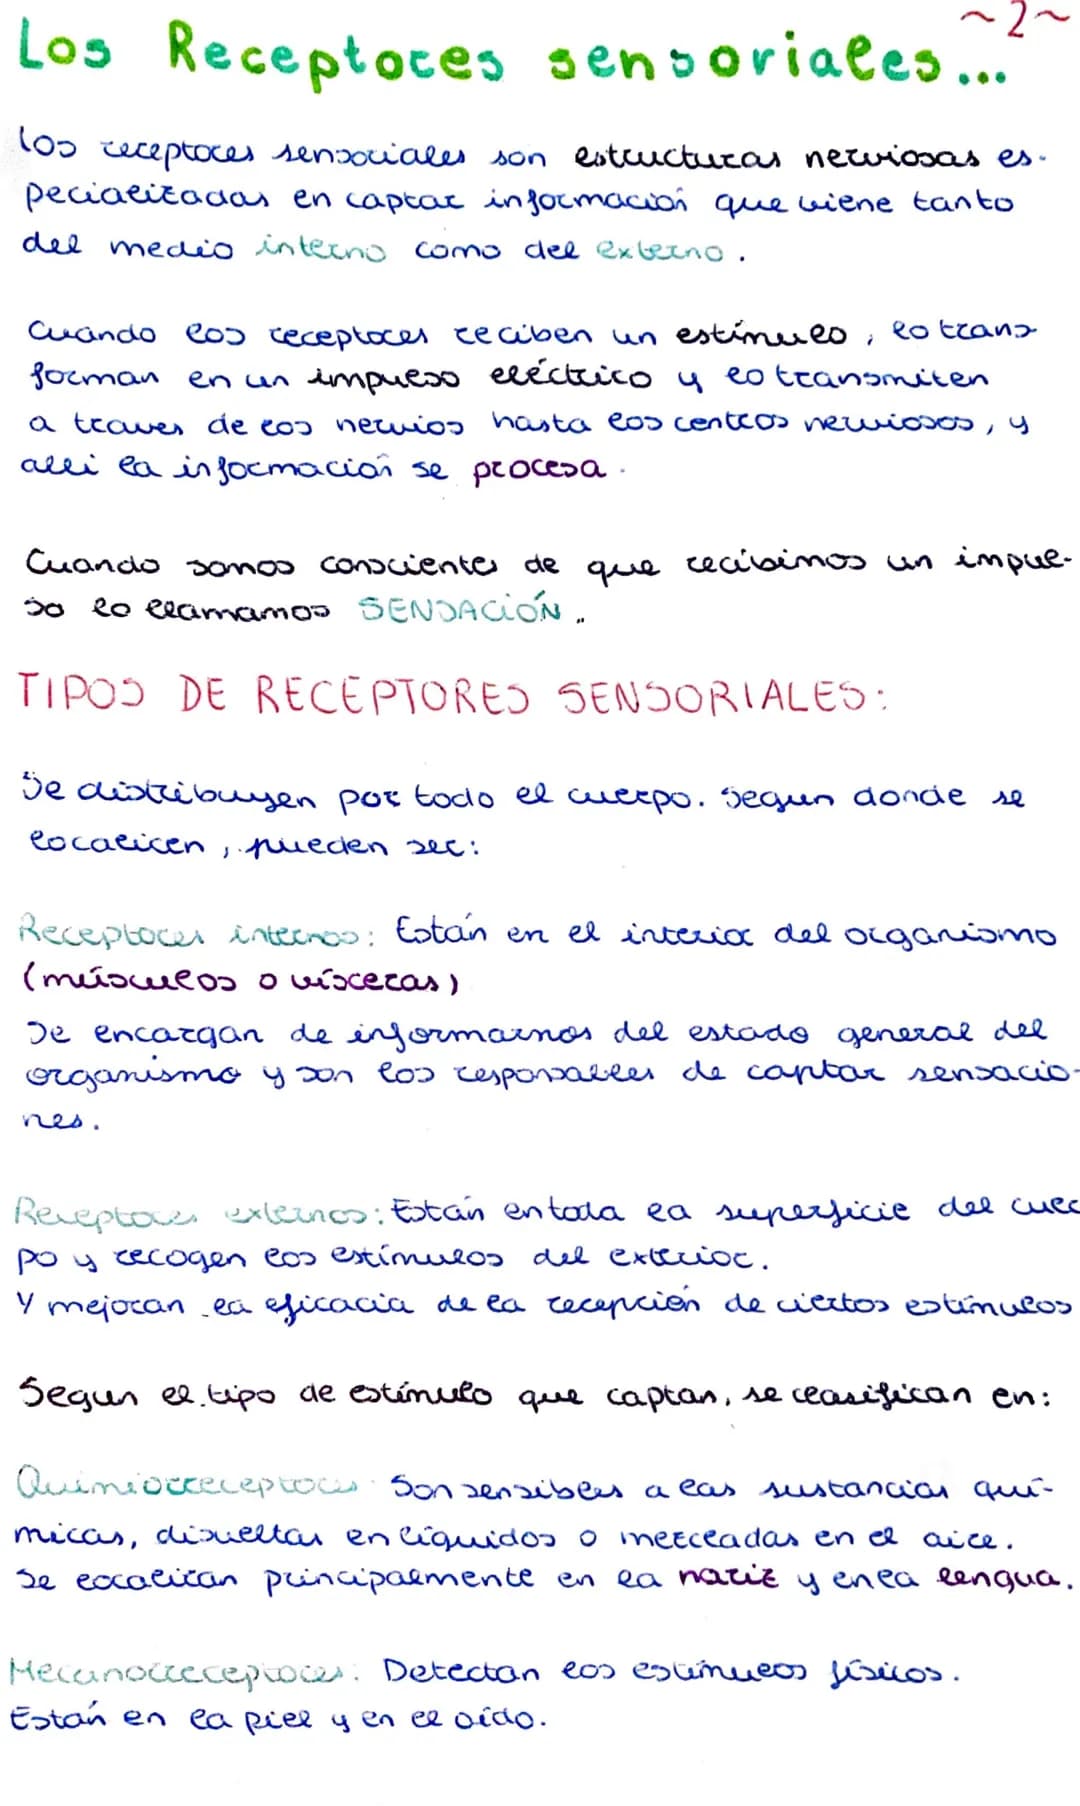 ~2~
Los Receptores sensoriales...
Los receptores sensoriales son estructuras nerviosas es-
pecializadas en captar información que viene tanto
del medio interno como del externo.
Cuando los receptores reciben un estímulo, lo trans
forman en un impulso eléctrico y lo transmiten
a traves de los nervios hasta los centros nerviosos, y
alli la información se procesa.
Cuando somos conscientes de que recibimos un impul-
so lo llamamos SENSACIÓN.
TIPOS DE RECEPTORES SENSORIALES:
Se distribuyen por todo el cuerpo. Segun donde se
localicen, pueden ser:
Receptores internos: Están en el interior del organismo
(músculos o vísceras)
Se encargan de informarnos del estado general del
organismo y son los responsables de captar sensacio-
nes.
Receptores externos: Están en toda la superficie del cuer
po y recogen los estímulos del exterior.
Y mejoran la eficacia de la recepción de ciertos estímulos
Segun el tipo de estímulo que captan, se clasifican en:
Quimiorreceptores: Son sensibles a las sustancias quí-
micas, disueltas en líquidos o mezcladas en el aire.
Se localizan principalmente en la nariz y en la lengua.
Mecanorreceptores: Detectan los estímulos físicos.
Están en la piel y en el oído.